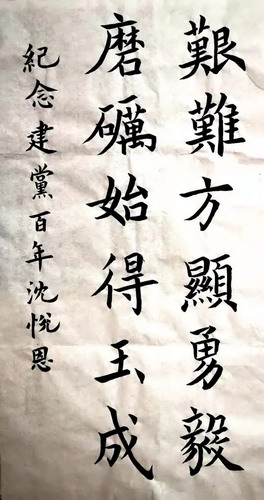 艱難方顯勇毅
磨礪始得玉成
紀念建黨百年沈悅恩